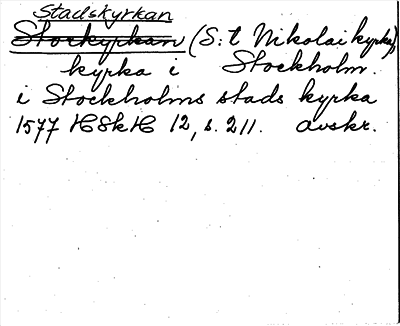 Stadskyrkan
Storkyrkan (S:t Nikolai kyrka),
kyrka i Stockholm.
i Stockholms stads kyrka
1577 HSkH 12, s. 211. avskr.